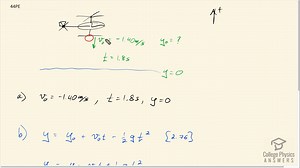 44PE
+
v₀ = -1.40 m/s y₀ = ?
t = 1.8s
y = 0
a) v₀ = -1.40 m/s , t = 1.8s, y = 0
b) y = y₀ + v₀t - ½gt² [2.76]
College Physics
ANSWERS